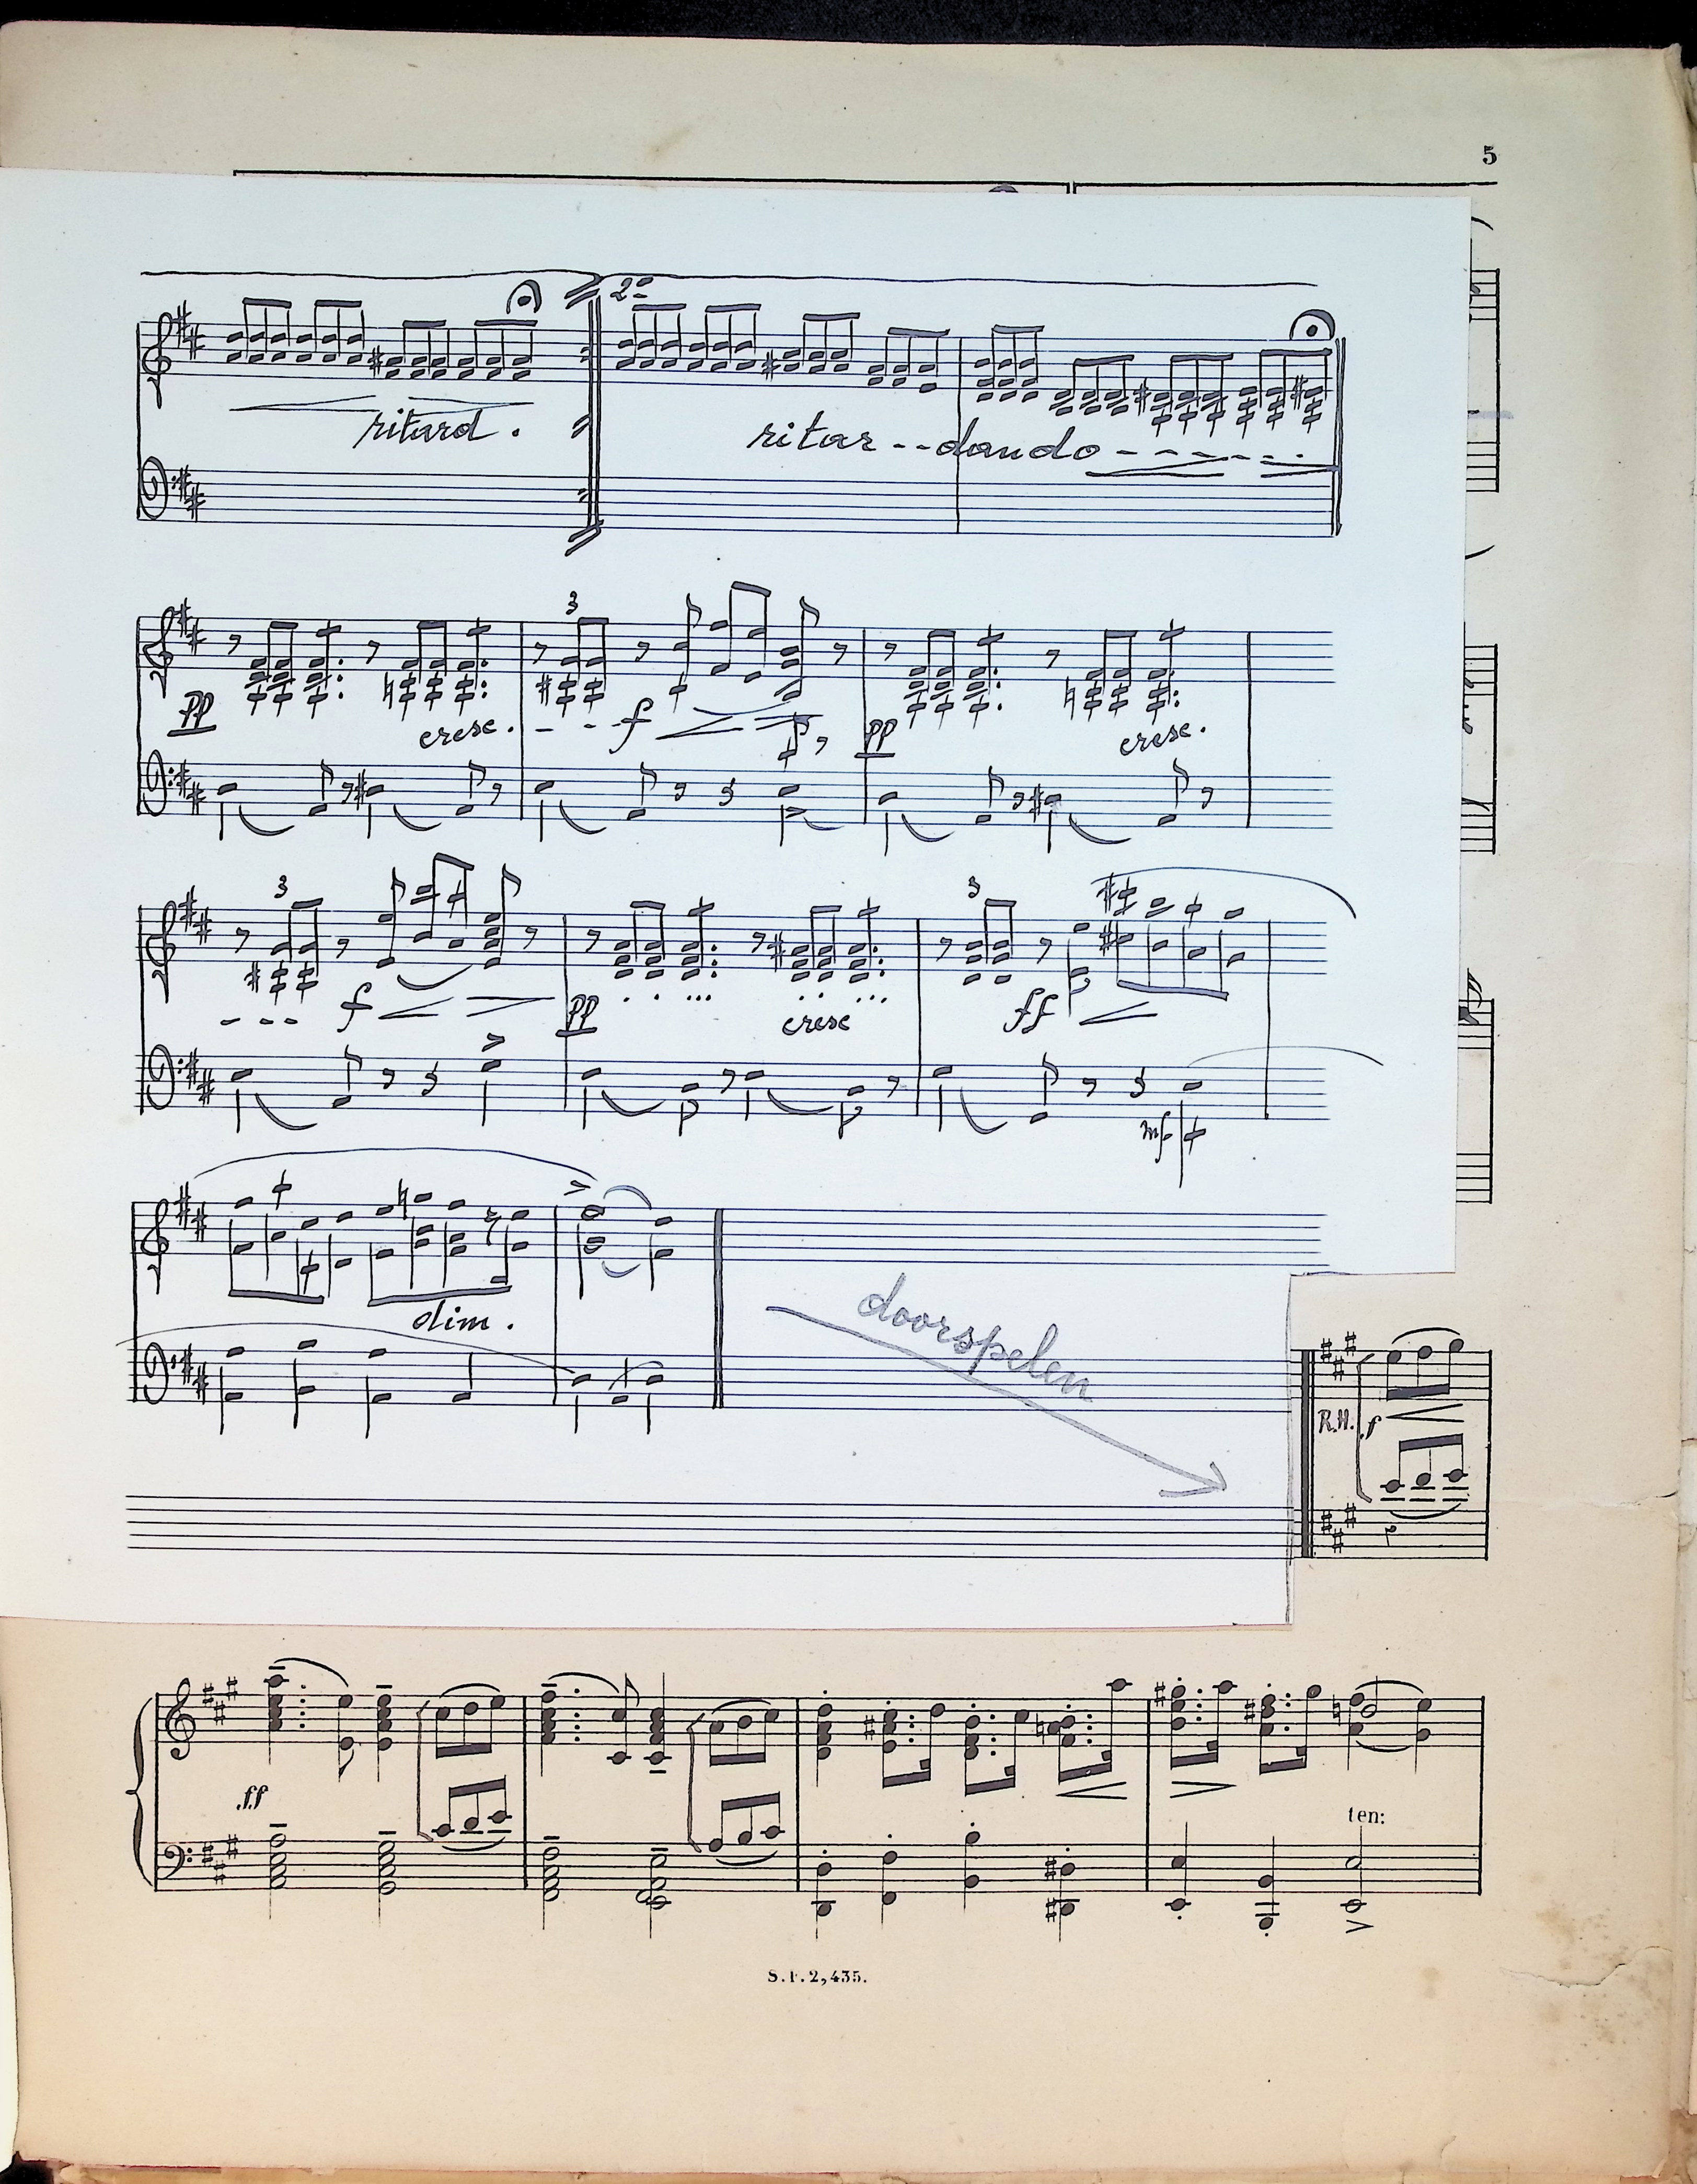 5
2º
ritard.
ritar--dando------
3
pp cresc. - - - f pp cresc.
3 3
- - - f pp cresc ff
mf
dim.
doorspelen
R.H. f
ff
ten:
S.F.2,435.